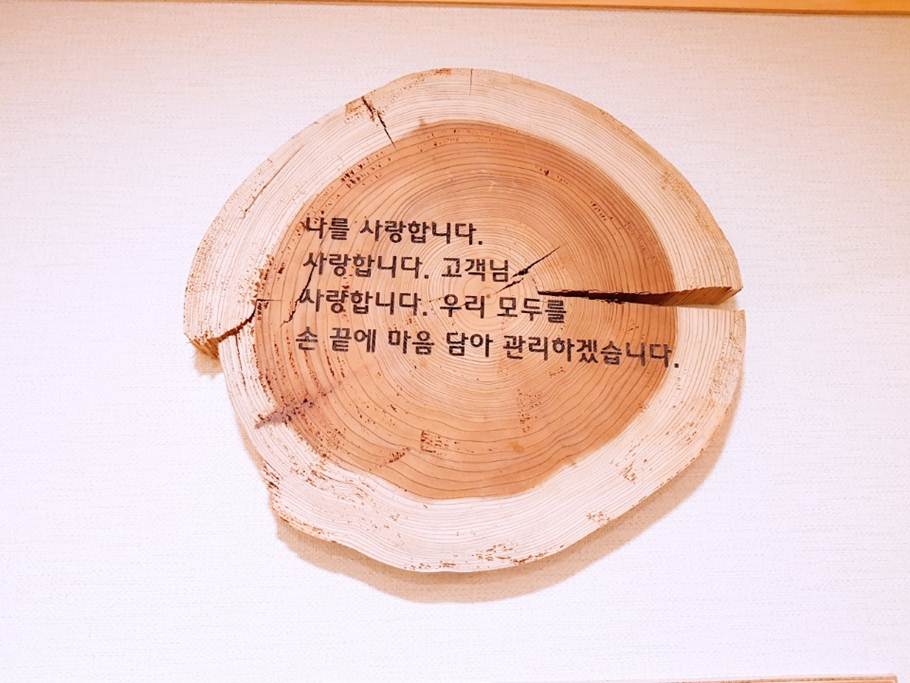 나를 사랑합니다.
사랑합니다. 고객님
사랑합니다. 우리 모두를
손 끝에 마음 담아 관리하겠습니다.